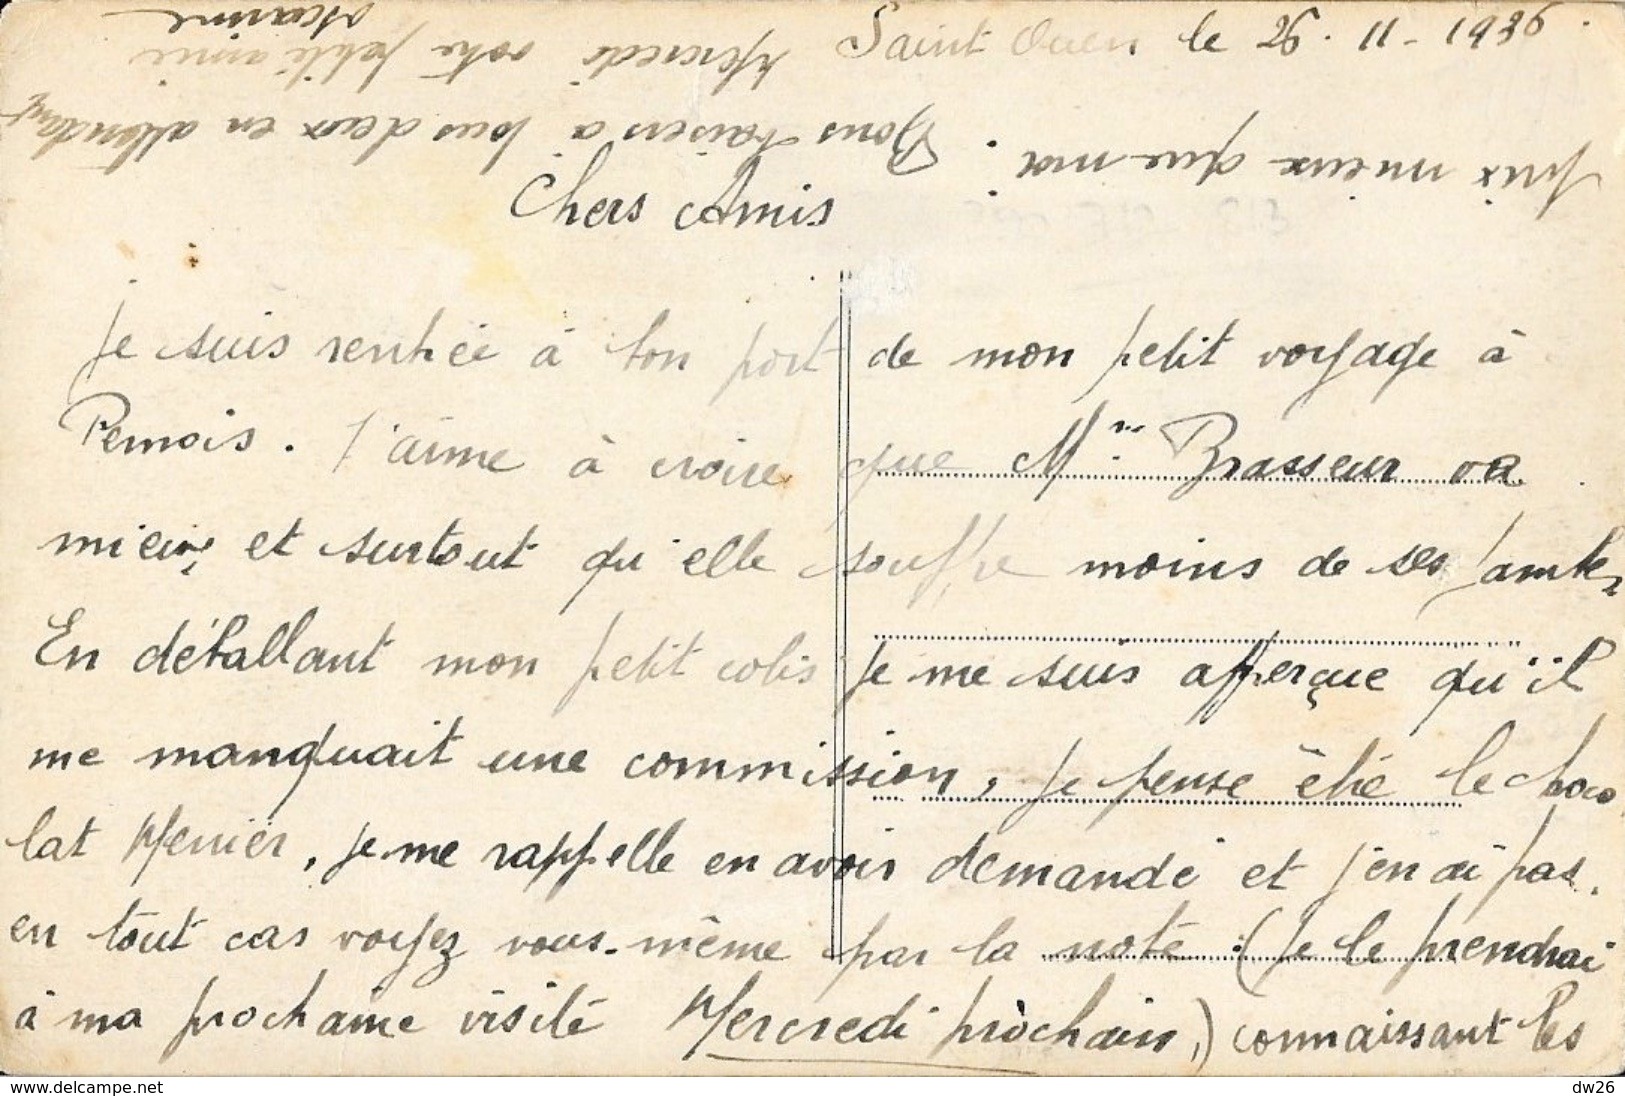 Saint Ouen le 26. 11 - 1936.
Chers Amis
Je suis rentrée à bon port de mon petit voyage à
Pernois. J'aime à croire que Mme Brasseur va
mieux, et surtout qu'elle souffre moins de ses jambes
En détallant mon petit colis je me suis apperçue qu'il
me manquait une commission, je pense être le choco
lat Menier, je me rappelle en avoir demandé et j'en ai pas.
en tout cas voyez vous-même par la note : (je le prendrai
à ma prochaine visite Mercredi prochain,) connaissant les
prix mieux que moi.
Bons baisers à tous deux en attendant
Mercredi votre petite amie
delcampe.net
dw26